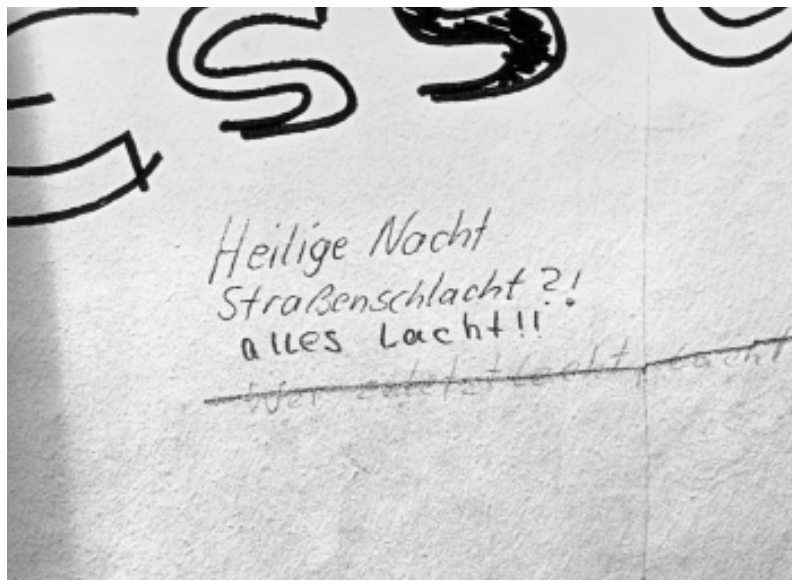 ESS
Heilige Nacht
Straßenschlacht?!
alles Lacht!!
Wer zuletzt lacht, lacht